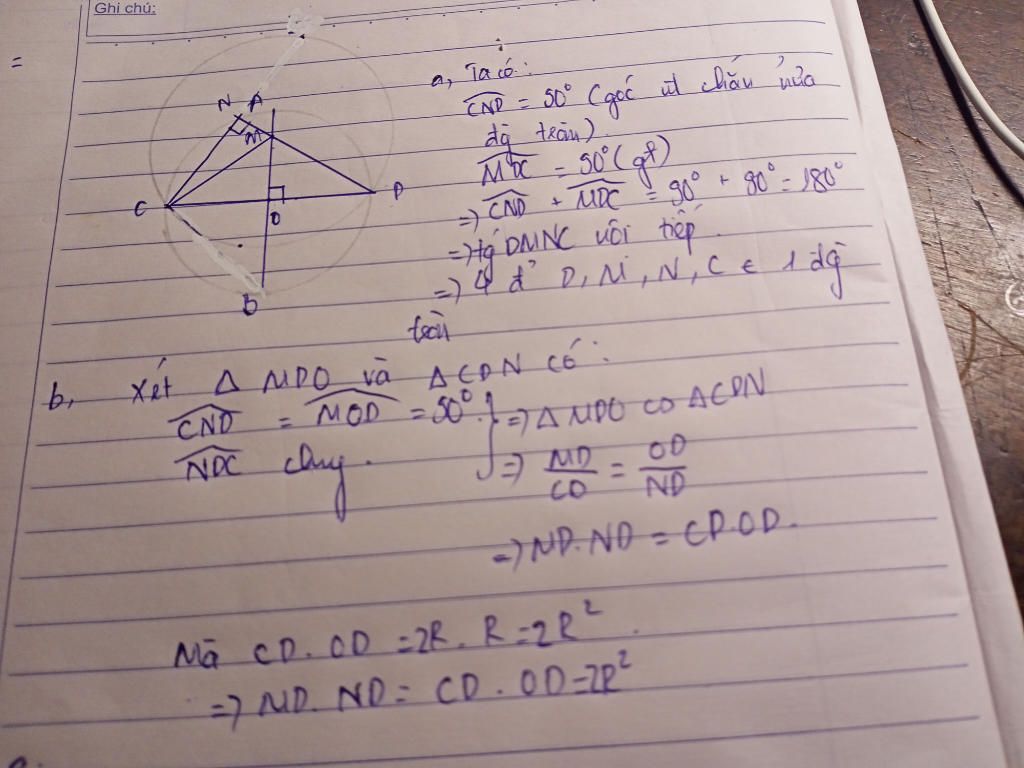 Ghi chú:
=
N A
M
C
D
O
B
a, Ta có:
CND = 90° (góc nt chắn nửa
đg tròn)
MDC = 90° (gt)
=> CND + MDC = 90° + 90° = 180°
=> tg DMNC nội tiếp.
=> 4 đ' D, M, N, C ∈ 1 đg
tròn
b, Xét Δ MDO và Δ CDN có:
CND = MOD = 90° } => Δ MDO ∽ Δ CDN
NDC chung.
=> MD/CD = OD/ND
=> MD.ND = CD.OD.
Mà CD.OD = 2R.R = 2R².
=> MD.ND = CD.OD = 2R²